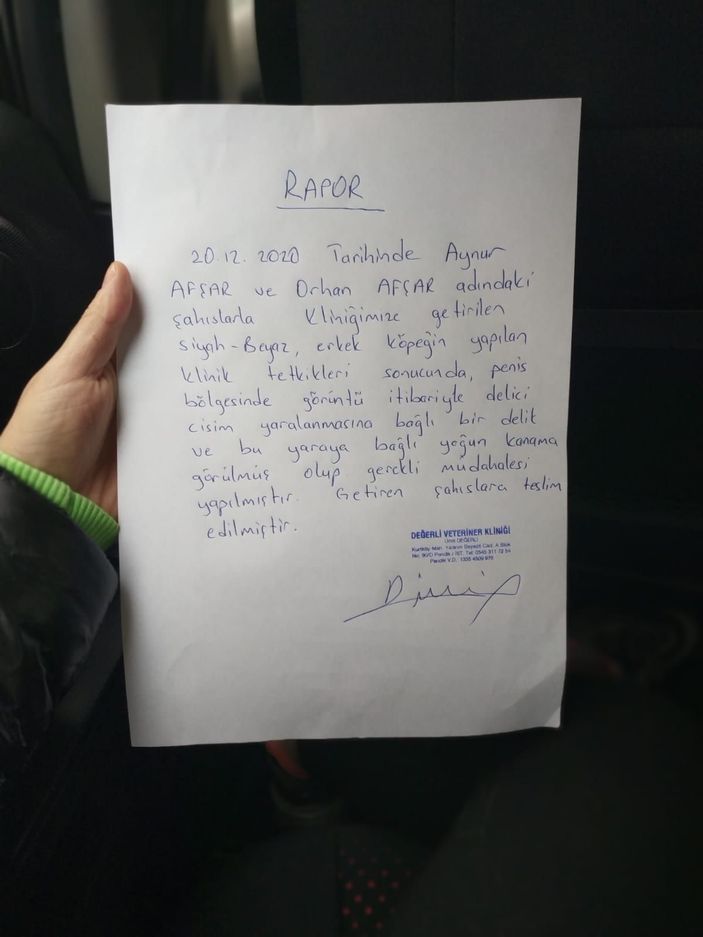 RAPOR
20.12.2020 Tarihinde Aynur
AFŞAR ve Orhan AFŞAR adındaki
şahıslarla kliniğimize getirilen
siyah-Beyaz, erkek köpeğin yapılan
klinik tetkikleri sonucunda, penis
bölgesinde görüntü itibariyle delici
cisim yaralanmasına bağlı bir delik
ve bu yaraya bağlı yoğun kanama
görülmüş olup gerekli müdahalesi
yapılmıştır. Getiren şahıslara teslim
edilmiştir.
DEĞERLİ VETERİNER KLİNİĞİ
Ümit DEĞERLİ
Kurtköy Mah. Yıldırım Beyazıt Cad. A Blok
No: 90/D Pendik / İST. Tel: 0545 311 72 54
Pendik V.D.